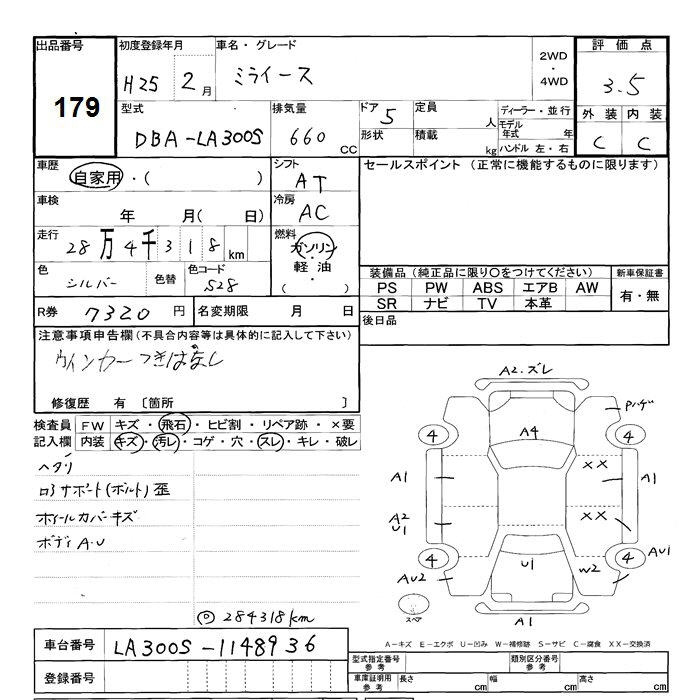 出品番号 初度登録年月 車名・グレード 2WD・4WD 評価点
179 H25 2月 ミライース 3.5
型式 排気量 ドア 定員 ディーラー・並行 外装 内装
DBA-LA300S 660 CC 5 人 モデル年式 年 C C
形状 積載 kg ハンドル 左・右
車歴 自家用・( ) シフト AT セールスポイント (正常に機能するものに限ります)
車検 年 月( 日) 冷房 AC
走行 28万4千318km 燃料 ガソリン・軽油・( )
色 シルバー 色替 色コード S28
装備品(純正品に限り〇をつけてください) 新車保証書
PS PW ABS エアB AW 有・無
SR ナビ TV 本革
R券 7320円 名変期限 月 日
後日品
注意事項申告欄(不具合内容等は具体的に記入して下さい)
ウインカーつきぱなし
修復歴 有 〔箇所 〕
検査員記入欄 FW キズ・飛石・ヒビ割・リペア跡・×要
内装 キズ・汚レ・コゲ・穴・スレ・キレ・破レ
ヘタリ
ロアサポート(ボルト)歪
ホイールカバーキズ
ボディA.U
◎284318km
A2.ズレ
Pハゲ
4 A4 4
A1 XX A1
A2 U1 XX
4 U1 4 AU1
AU2 W2
スペア A1
A-キズ E-エクボ U-凹み W-補修跡 S-サビ C-腐食 XX-交換済
車台番号 LA300S-1148936
登録番号
型式指定番号 参考 類別区分番号 参考
車庫証明用 参考 長さ cm 幅 cm 高さ cm